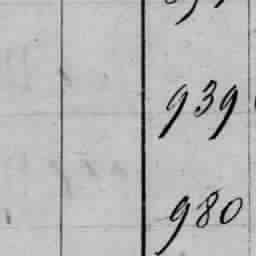 939
980